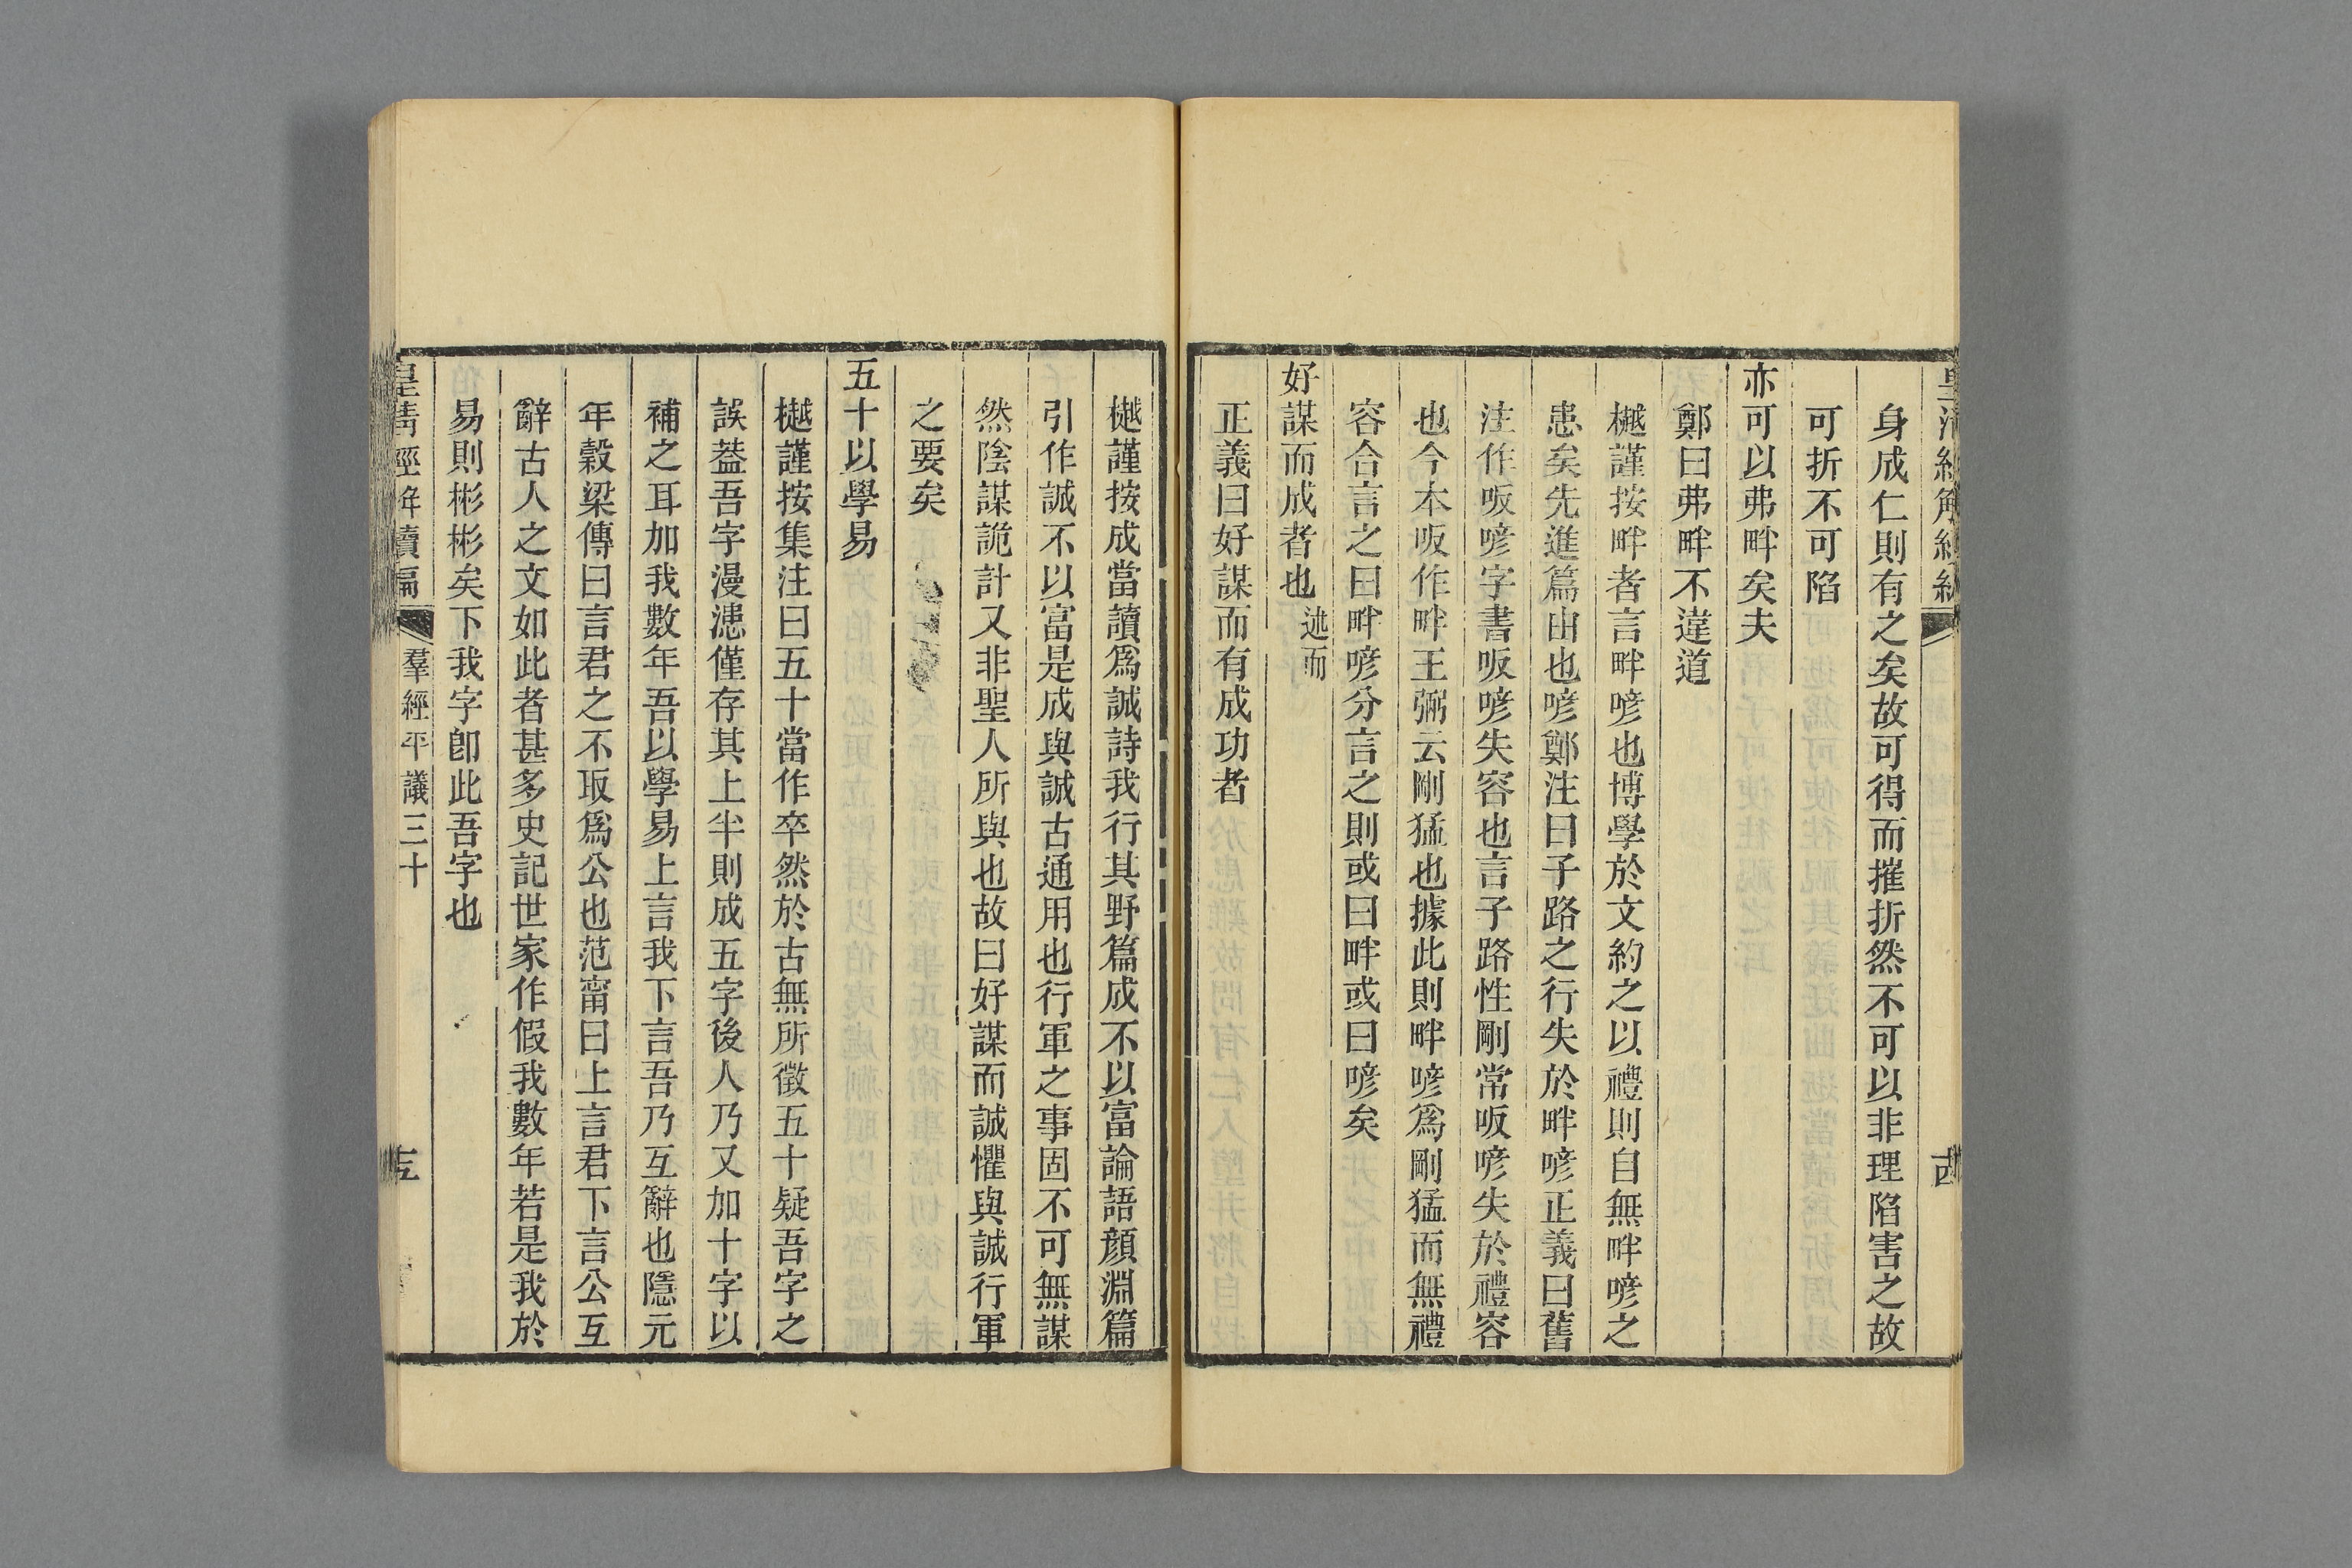 身成仁則有之矣故可得而摧折然不可以非理陷害之故
可折不可陷
亦可以弗畔矣夫
鄭曰弗畔不違道
樾謹按畔者言畔喭也博學於文約之以禮則自無畔喭之
患矣先進篇由也喭鄭注曰子路之行失於畔喭正義曰舊
注作㕭喭字書㕭喭失容也言子路性剛常㕭喭失於禮容
也今本㕭作畔王弼云剛猛也據此則畔喭爲剛猛而無禮
容合言之曰畔喭分言之則或曰畔或曰喭矣
好謀而成者也述而
正義曰好謀而有成功者
樾謹按成當讀爲誠詩我行其野篇成不以富論語顏淵篇
引作誠不以富是成與誠古通用也行軍之事固不可無謀
然陰謀詭計又非聖人所與也故曰好謀而誠懼與誠行軍
之要矣
五十以學易
樾謹按集注曰五十當作卒然於古無所徵五十疑吾字之
誤葢吾字漫漶僅存其上半則成五字後人乃又加十字以
補之耳加我數年吾以學易上言我下言吾乃互辭也隱元
年穀梁傳曰言君之不取爲公也范甯曰上言君下言公互
辭古人之文如此者甚多史記世家作假我數年若是我於
易則彬彬矣下我字卽此吾字也
皇清經解續編
羣經平議三十